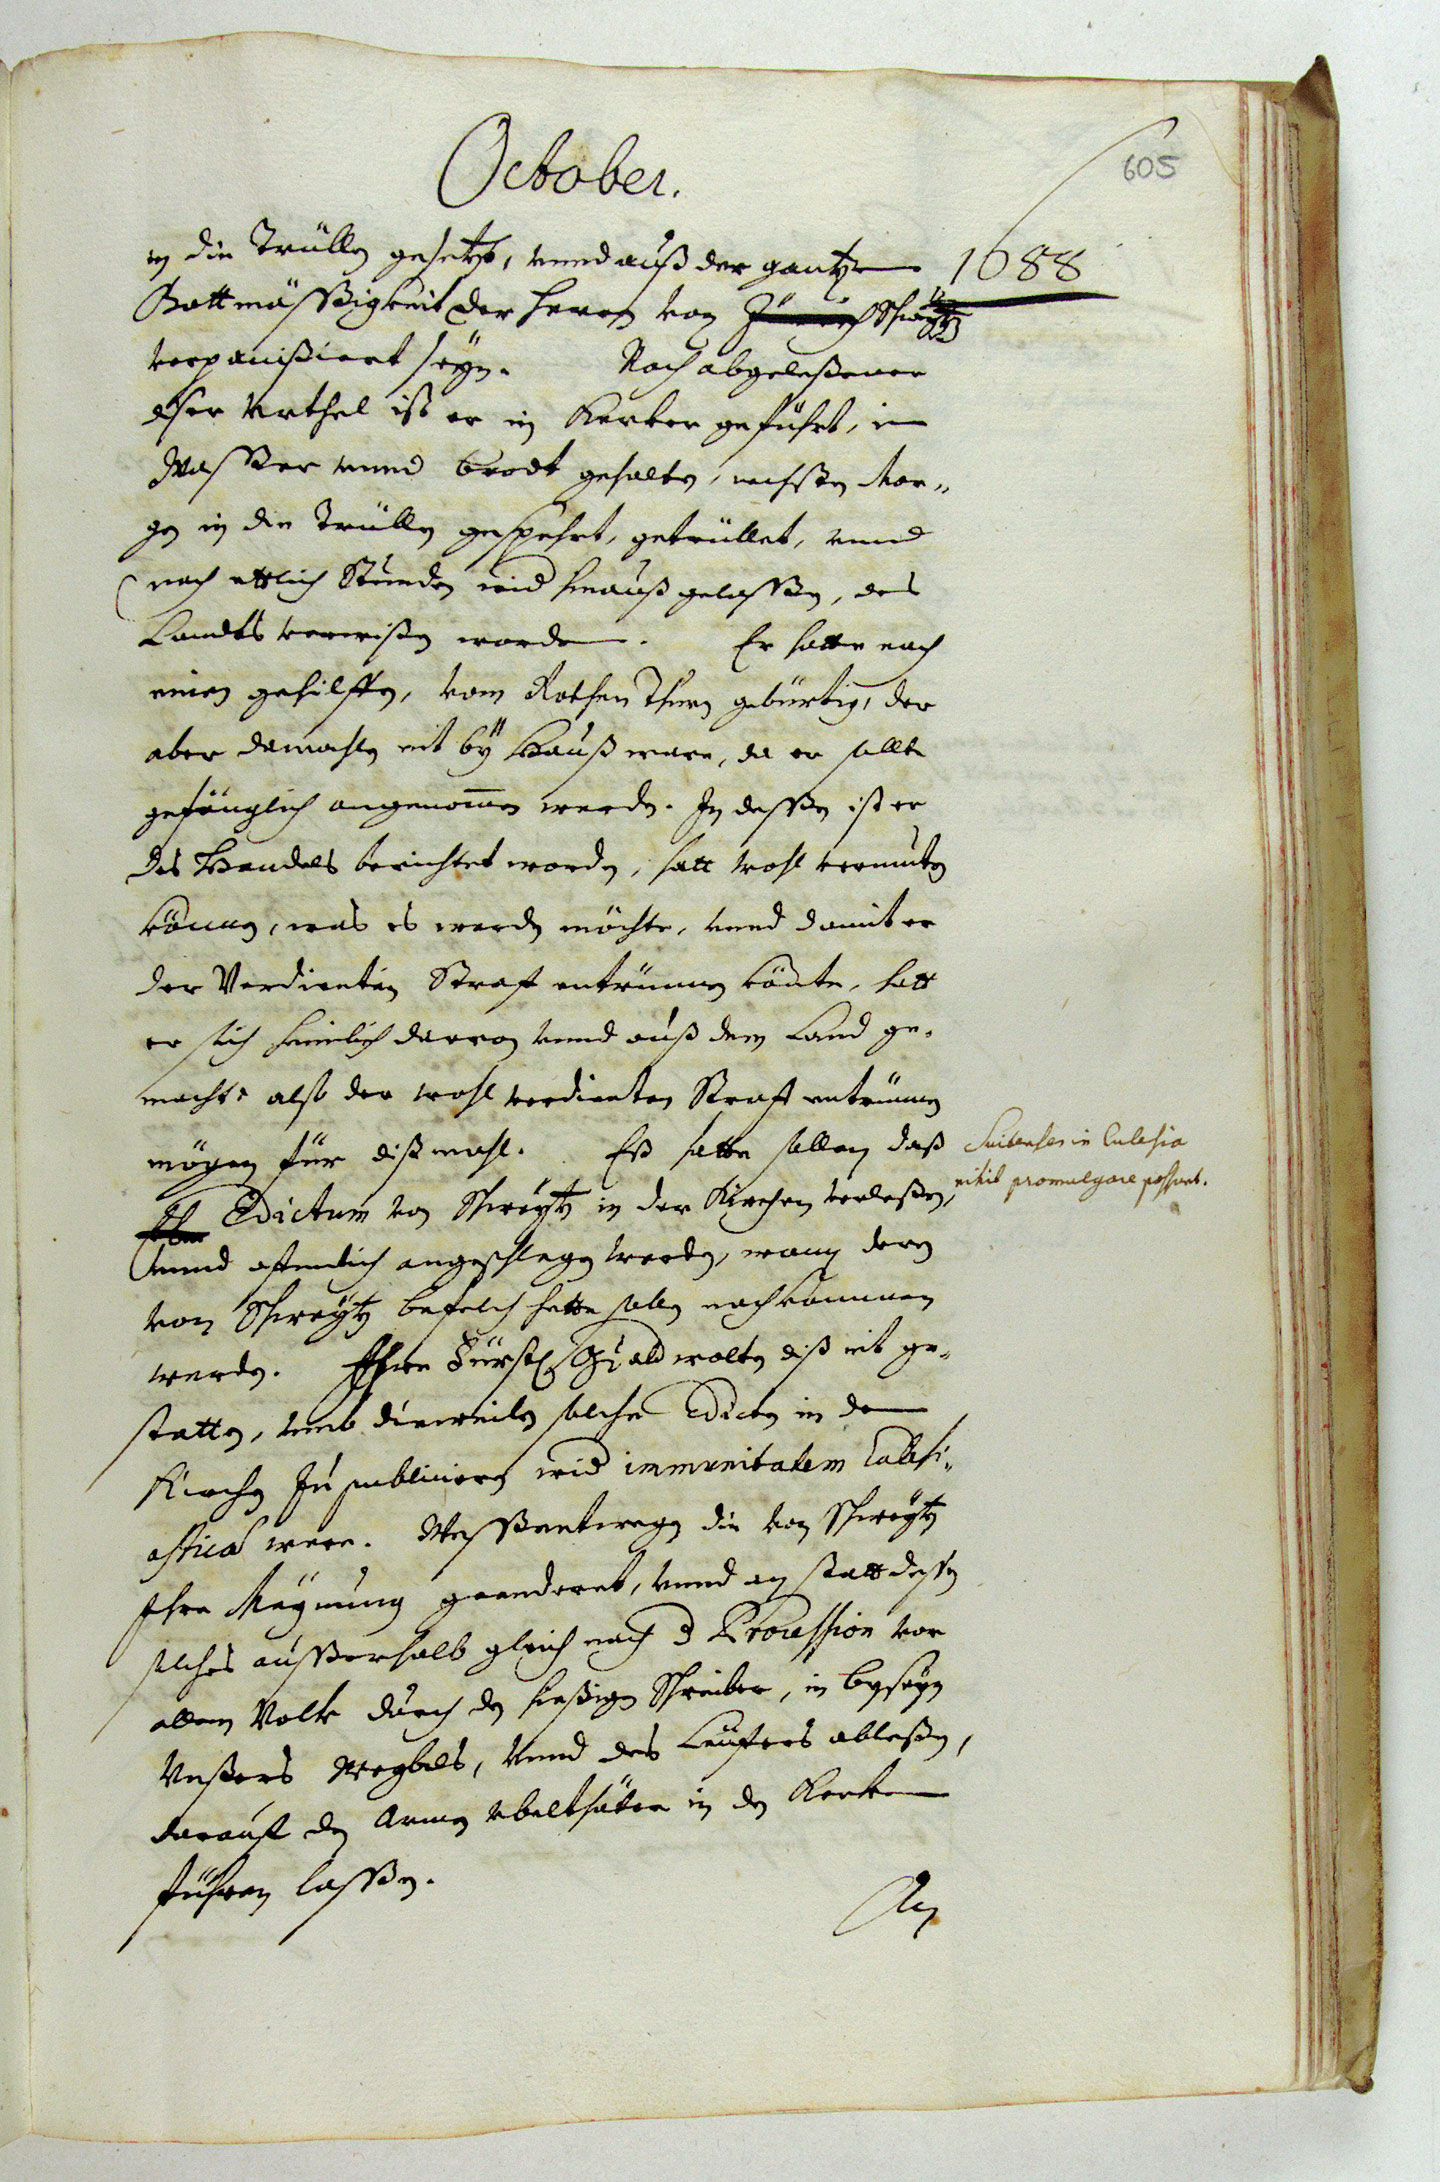 605
October.
1688
in die Trüllen gesetzt, unnd auß der gantzen
Bottmässßigkeit der Herren von Zürich Schweytz
verpanisiert seyn. Nach abgeleßener
diser Urthel ist er in Kerker geführt, in
Wasßer unnd brodt gehalten, nechsten Mor„
gen in die Trüllen gespehrt, getrüllet, unnd
nach ettlich Stunden wid hinauß gelasßen, des
Landts verwißen worden. Er hatte noch
einen gehilffen, vom Rothen Thurn gebürtig, der
aber damahlen nit by Hauß ware, da er sollte
gefänglich angenommen werden. In desßen ist er
des Handels berichtet worden, hatt wohl vermuten
können, was es werden möchte, unnd damit er
der Verdienten Straf entrünnen könte, hatt
er sich heimlich darvon unnd auß dem Land ge„
macht, also der wohl verdienten Straf entrünnen
mögen für dißmahl. Eß hatte sollen daß
Edictum von Schweytz in der Kirchen verleßen,
unnd offentlich angeschlagen werden, wann deren
von Schweytz befelch hette sollen nachkommen
werden. Ihre Fürstl. Gnad wolten diß nit ge„
statten, umb dieweilen solche Edicten in der
Kirchen zu publicieren wid immunitatem Eclesi„
asticam were. Wesßentwegen die von Schweytz
Ihre Meynung geanderet, unnd an statt dessen
solches ausßerhalb gleich nach d Procession vor
allem Volk durch den hießigen Schreiber, in byseyn
Unßers Weybels, unnd des Leufers ableßen,
darauf den Armen Ubelthäter in den Kerker
führen lasßen.
An
Suitenses in Eclesia
nihil promulgare possunt.